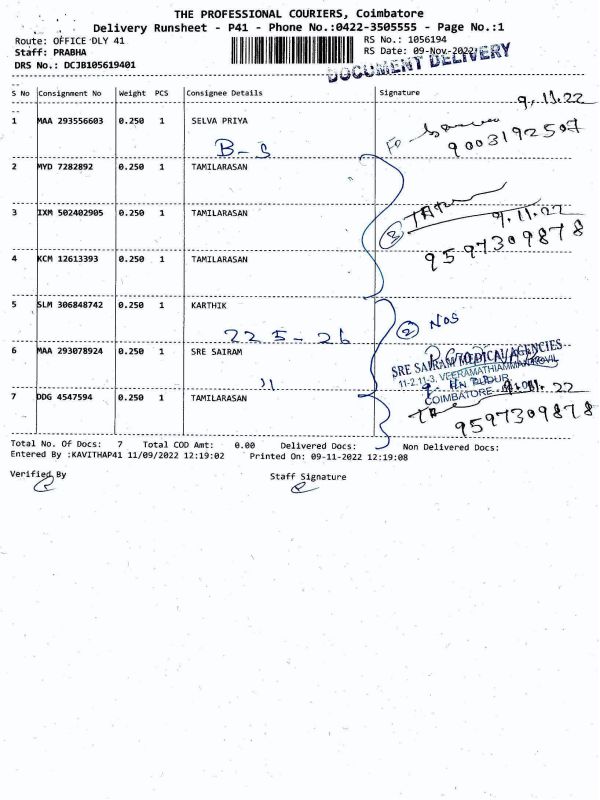 THE PROFESSIONAL COURIERS, Coimbatore
Delivery Runsheet - P41 - Phone No.:0422-3505555 - Page No.:1
Route: OFFICE DLY 41 RS No.: 1056194
Staff: PRABHA RS Date: 09-Nov-2022
DRS No.: DCJB105619401
DOCUMENT DELIVERY
S No Consignment No Weight PCS Consignee Details Signature
9.11.22
1 MAA 293556603 0.250 1 SELVA PRIYA
9003192507
B-S
2 MYD 7282892 0.250 1 TAMILARASAN
3 IXM 502402905 0.250 1 TAMILARASAN
9.11.22
3
9597309878
4 KCM 12613393 0.250 1 TAMILARASAN
5 SLM 306848742 0.250 1 KARTHIK
2 Nos
22 5-26
6 MAA 293078924 0.250 1 SRE SAIRAM
SRE SAIRAM MEDICAL AGENCIES
11-2.11-3, VEERAMATHIAMMAN KOVIL
COIMBATORE
11
7 DDG 4547594 0.250 1 TAMILARASAN
9.11.22
9597309878
Total No. Of Docs: 7 Total COD Amt: 0.00 Delivered Docs: Non Delivered Docs:
Entered By :KAVITHAP41 11/09/2022 12:19:02 Printed On: 09-11-2022 12:19:08
Verified By Staff Signature